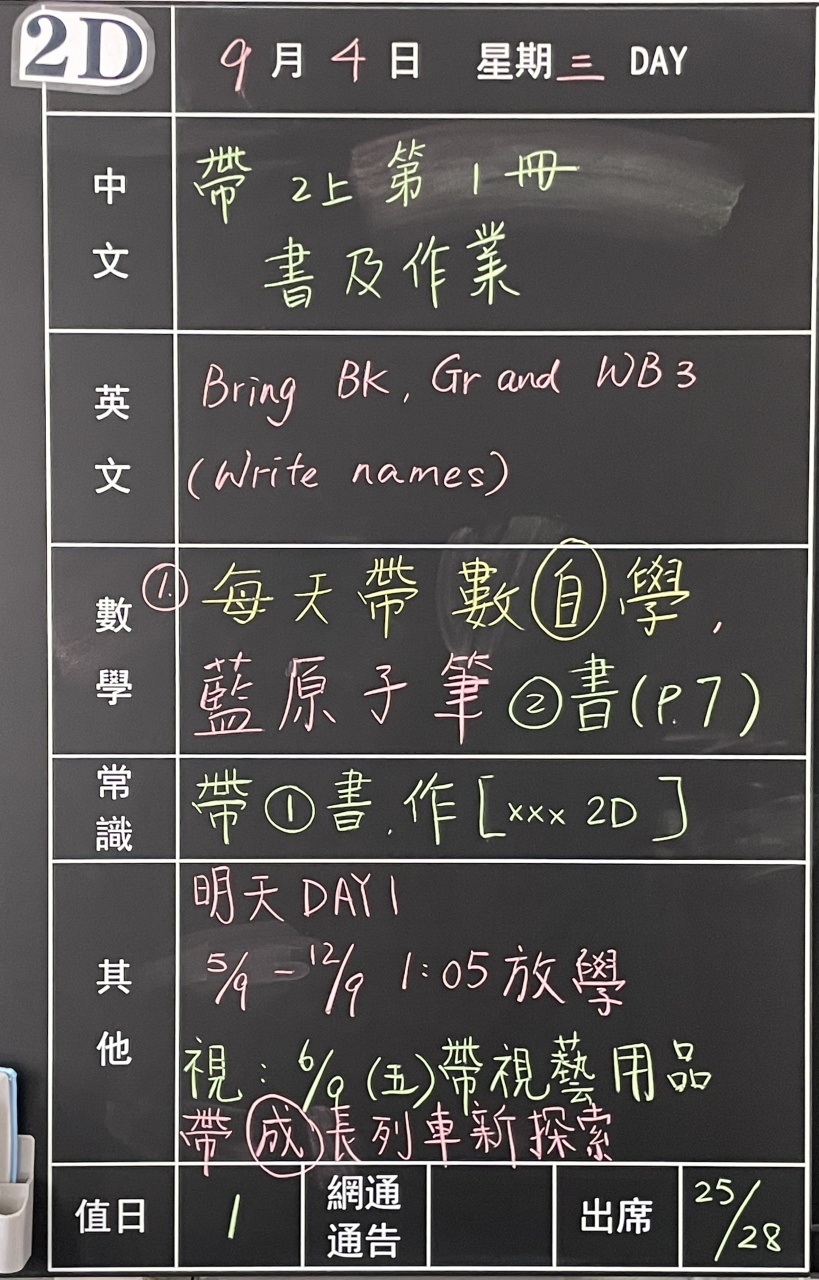 2D
9月4日 星期三 DAY
中文
帶 2上 第 1 冊
書及作業
英文
Bring BK, Gr and WB 3
(Write names)
數學
① 每天帶數自學,
藍原子筆 ② 書(P.7)
常識
帶 ① 書.作 [xxx 2D]
其他
明天 DAY 1
5/9 - 12/9 1:05 放學
視: 6/9 (五) 帶視藝用品
帶成長列車新探索
值日 1 網通通告 出席 25/28